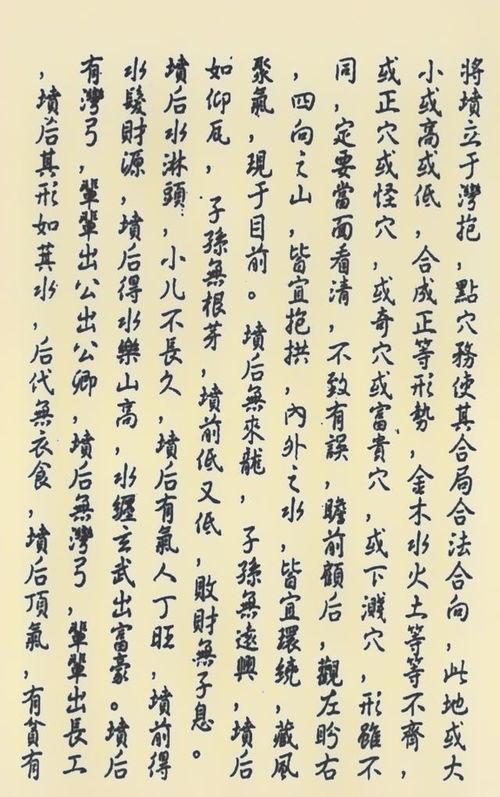 將墳立于灣抱，點穴務使其合局合法合向，此地或大
小或高或低，合成正等形勢，金木水火土等等不齊，
或正穴或怪穴，或奇穴或富貴穴，或下濺穴，形雖不
同，定要當面看清，不致有誤，瞻前顧后，觀左盼右
，四向之山，皆宜抱拱，內外之水，皆宜環繞，藏风
聚氣，現于目前。墳后無來龍，子孫無遠興，墳后
如仰瓦，子孫無根芽，墳前低又低，敗財無子息。
墳后水淋頭，小儿不長久，墳后有氣人丁旺，墳前得
水髮財源，墳后得水樂山高，水纏玄武出富豪。墳后
有灣弓，輩輩出公出公卿，墳后無灣弓，輩輩出長工
，墳后其形如其水，后代無衣食，墳后頂氣，有貧有